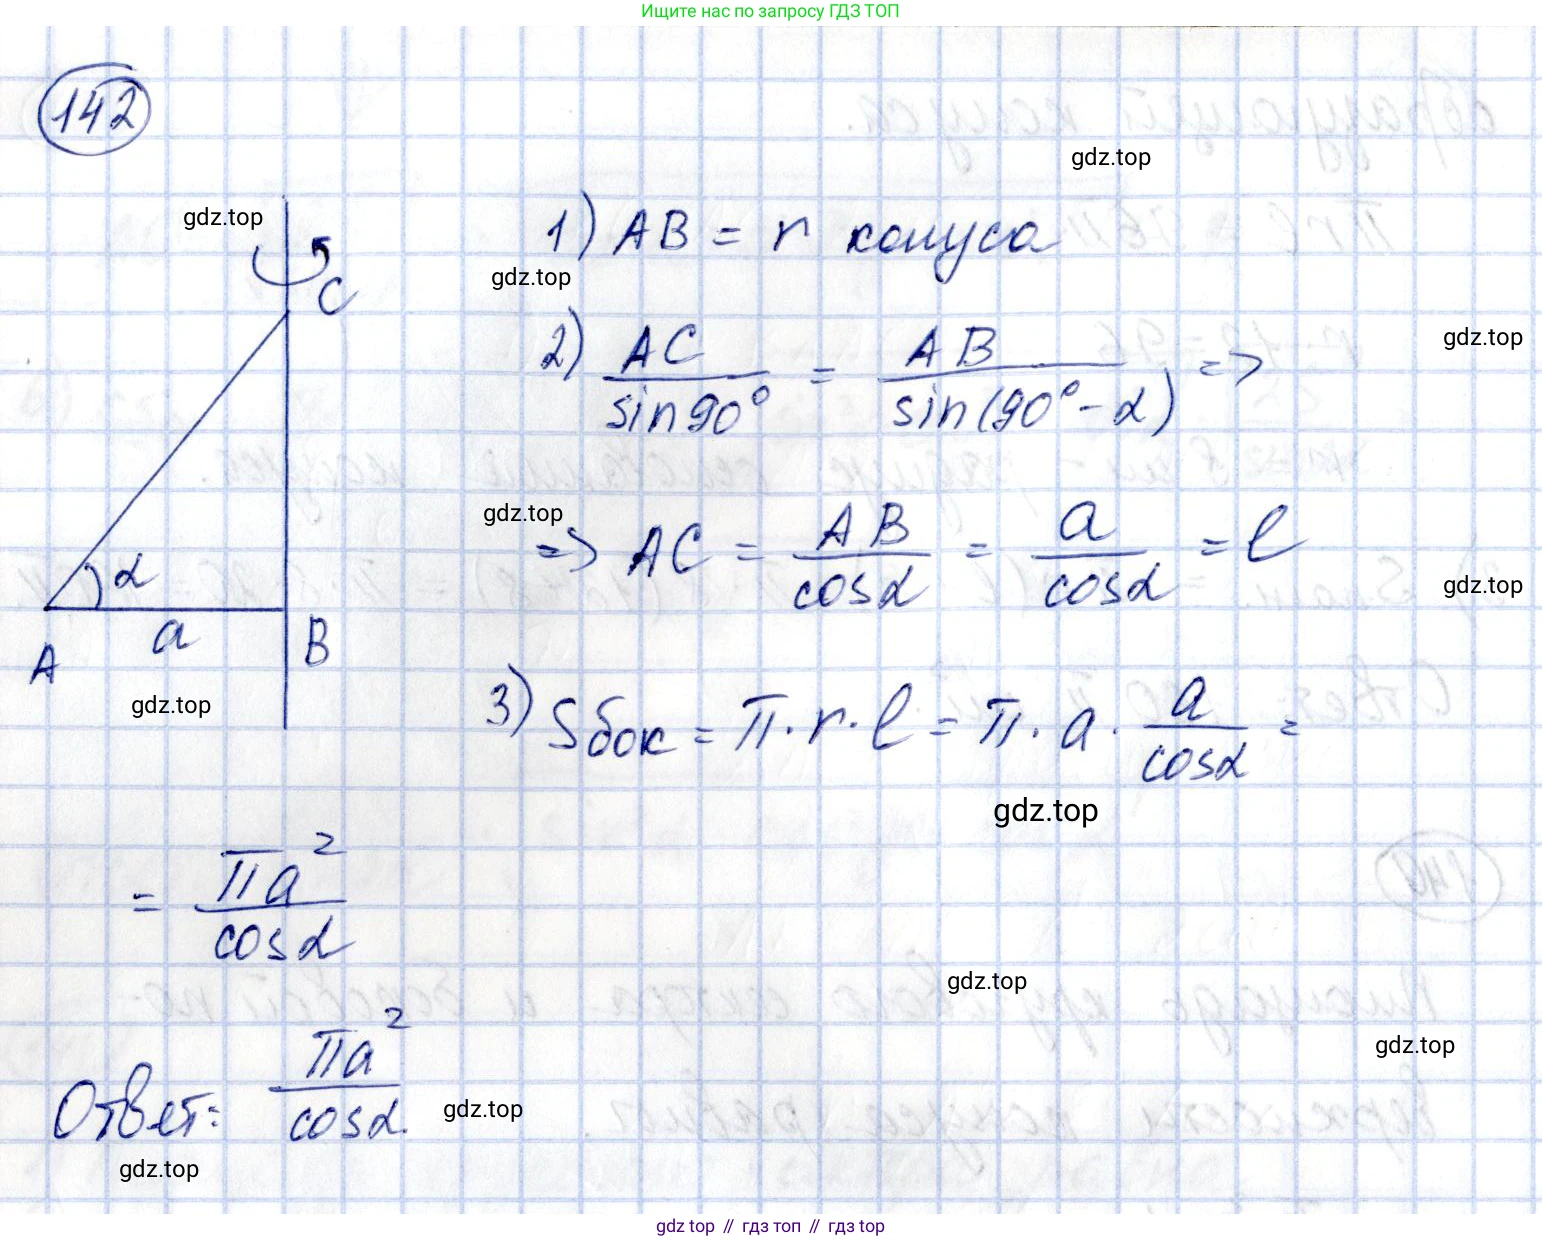 Ищите нас по запросу ГДЗ ТОП
142
gdz.top
gdz.top
1) AB = r конуса
gdz.top
C
2) AC / sin90° = AB / sin(90°-α) =>
gdz.top
gdz.top
=> AC = AB / cosα = a / cosα = l
gdz.top
α
a
A
B
gdz.top
3) Sбок = π·r·l = π·a· a / cosα =
gdz.top
= πa² / cosα
gdz.top
gdz.top
Ответ: πa² / cosα.
gdz.top
gdz.top
gdz top // гдз топ // gdz top